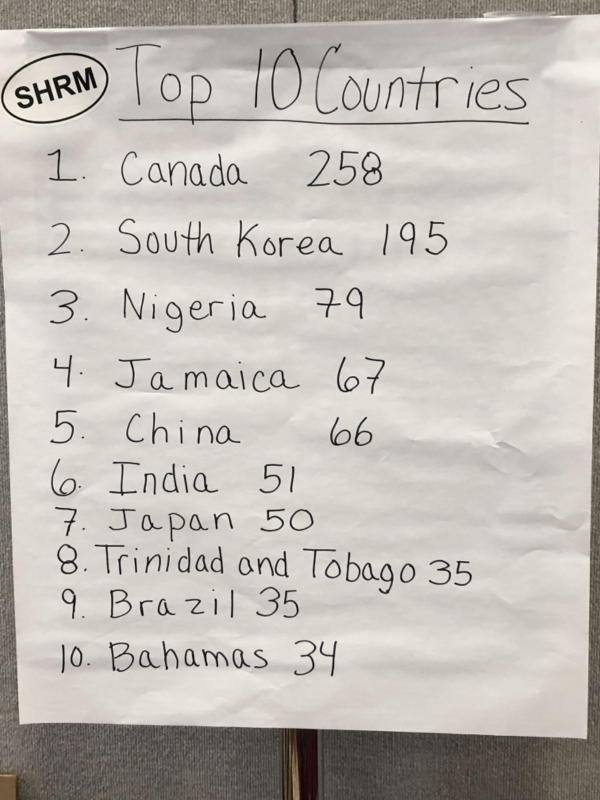 SHRM Top 10 Countries
1. Canada 258
2. South Korea 195
3. Nigeria 79
4. Jamaica 67
5. China 66
6. India 51
7. Japan 50
8. Trinidad and Tobago 35
9. Brazil 35
10. Bahamas 34